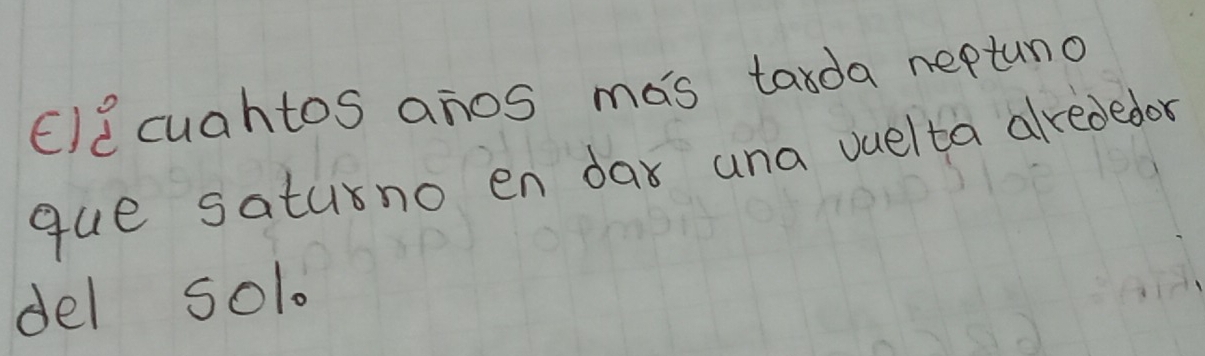 E)¿cuahtos años más tarda neptuno
que saturno en dar una vuelta alrededor
del sol.